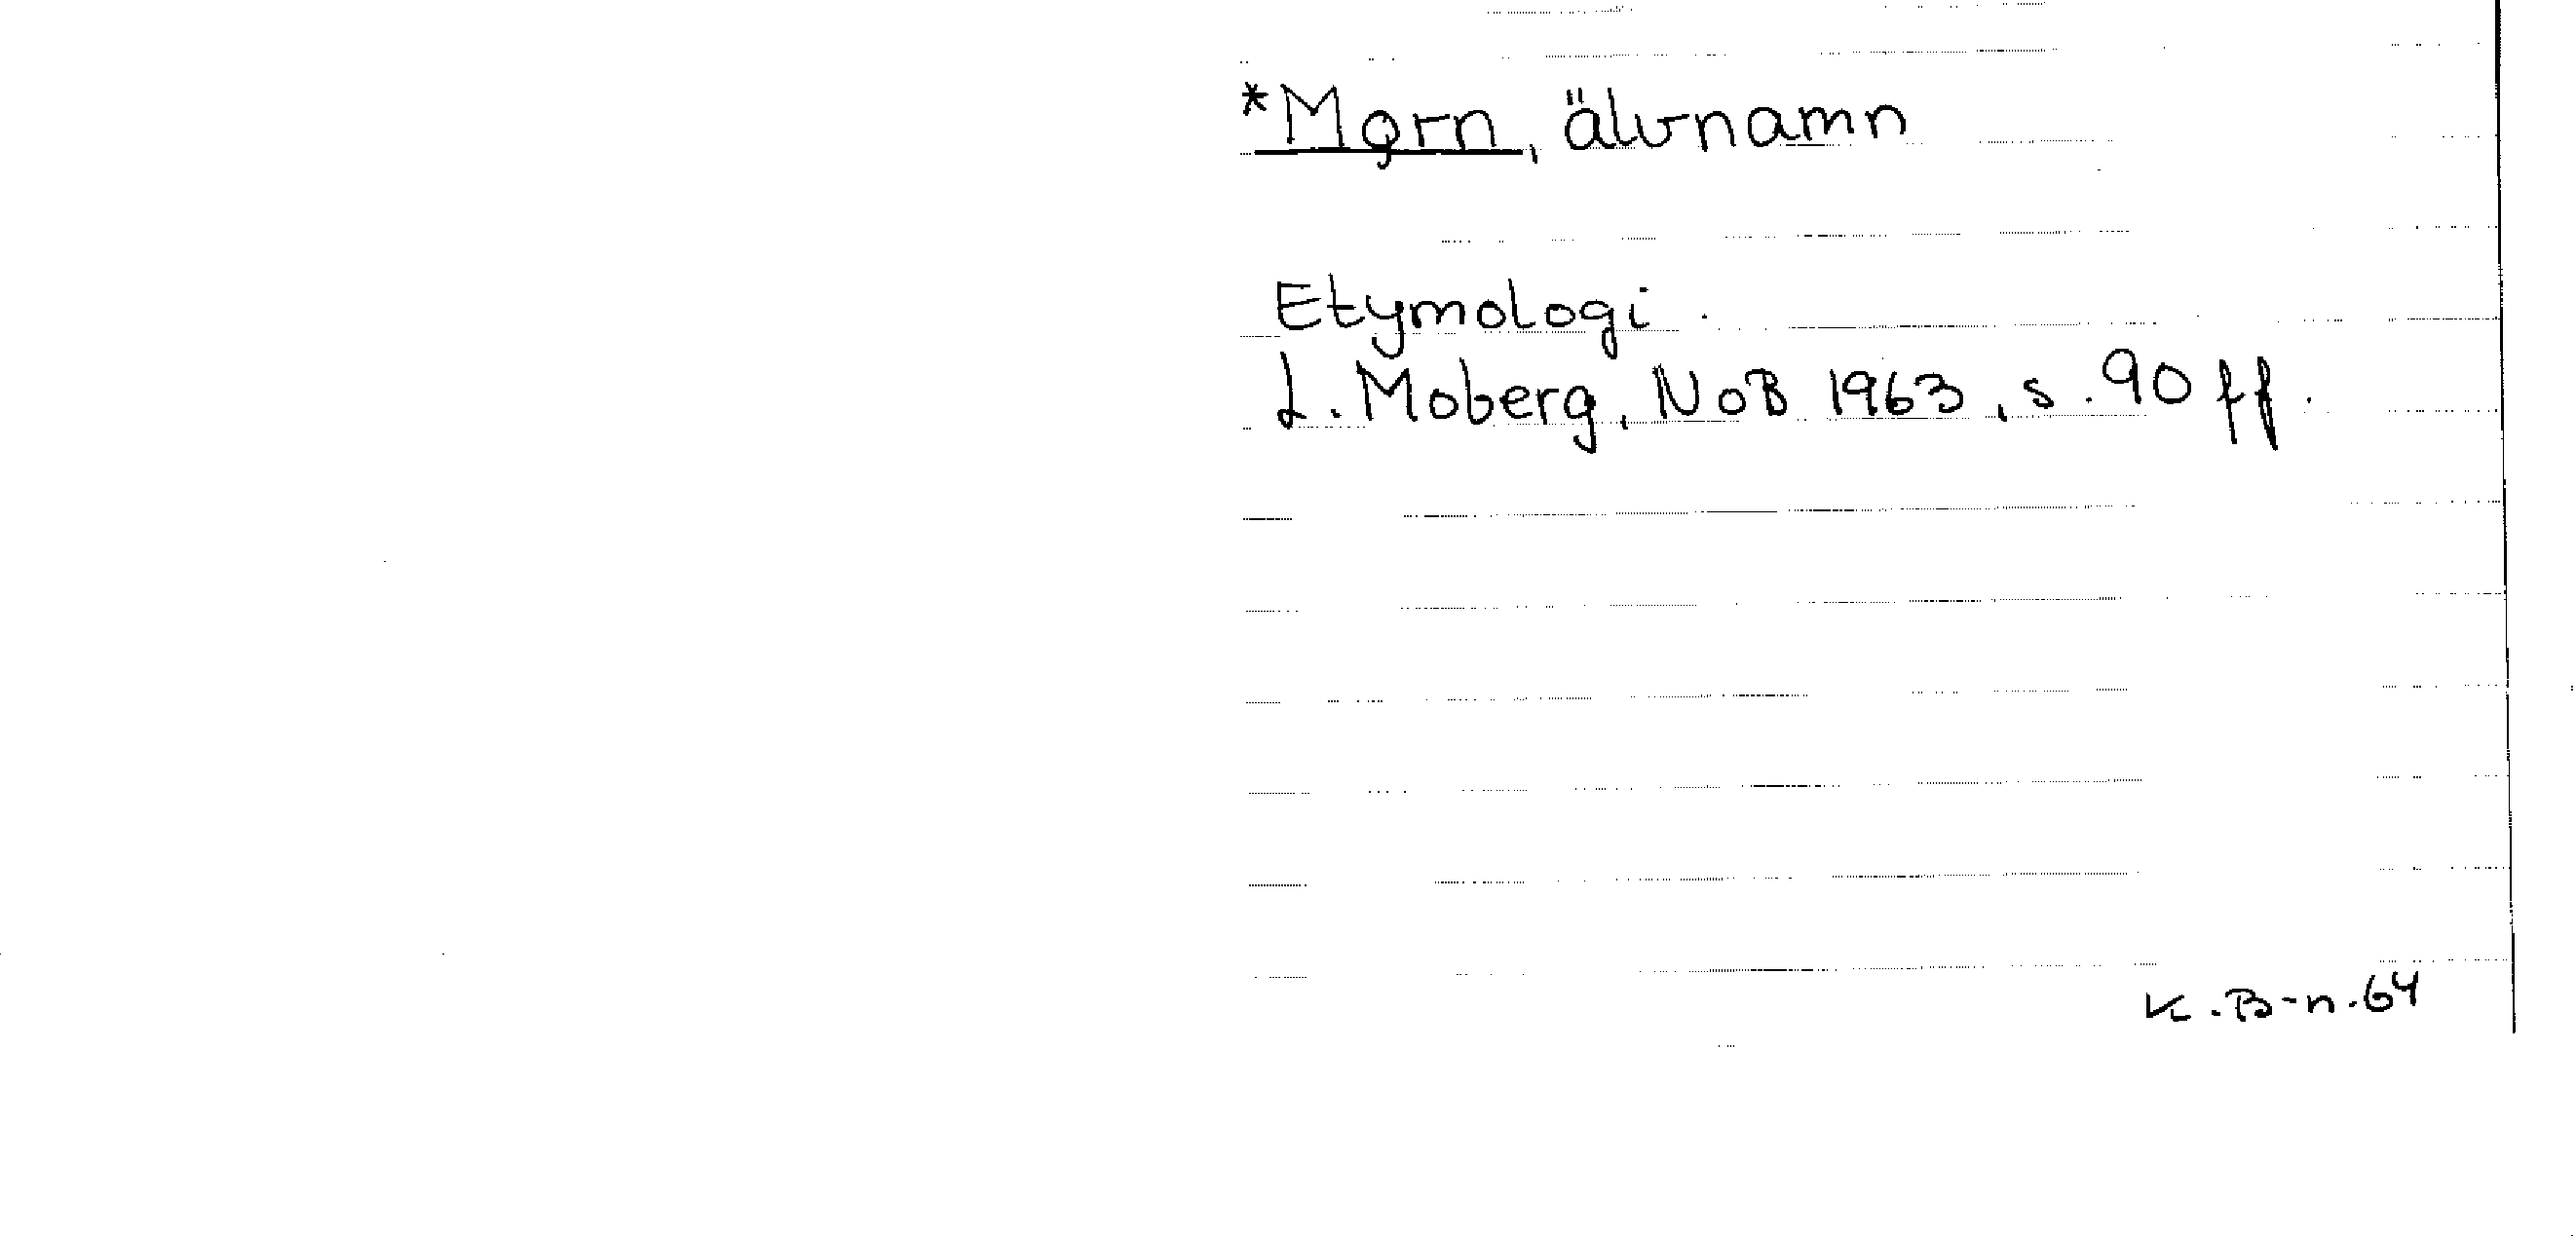 *Mǫrn, älvnamn
Etymologi.
L. Moberg, NoB 1963, s. 90 ff.
K. B-n. 64